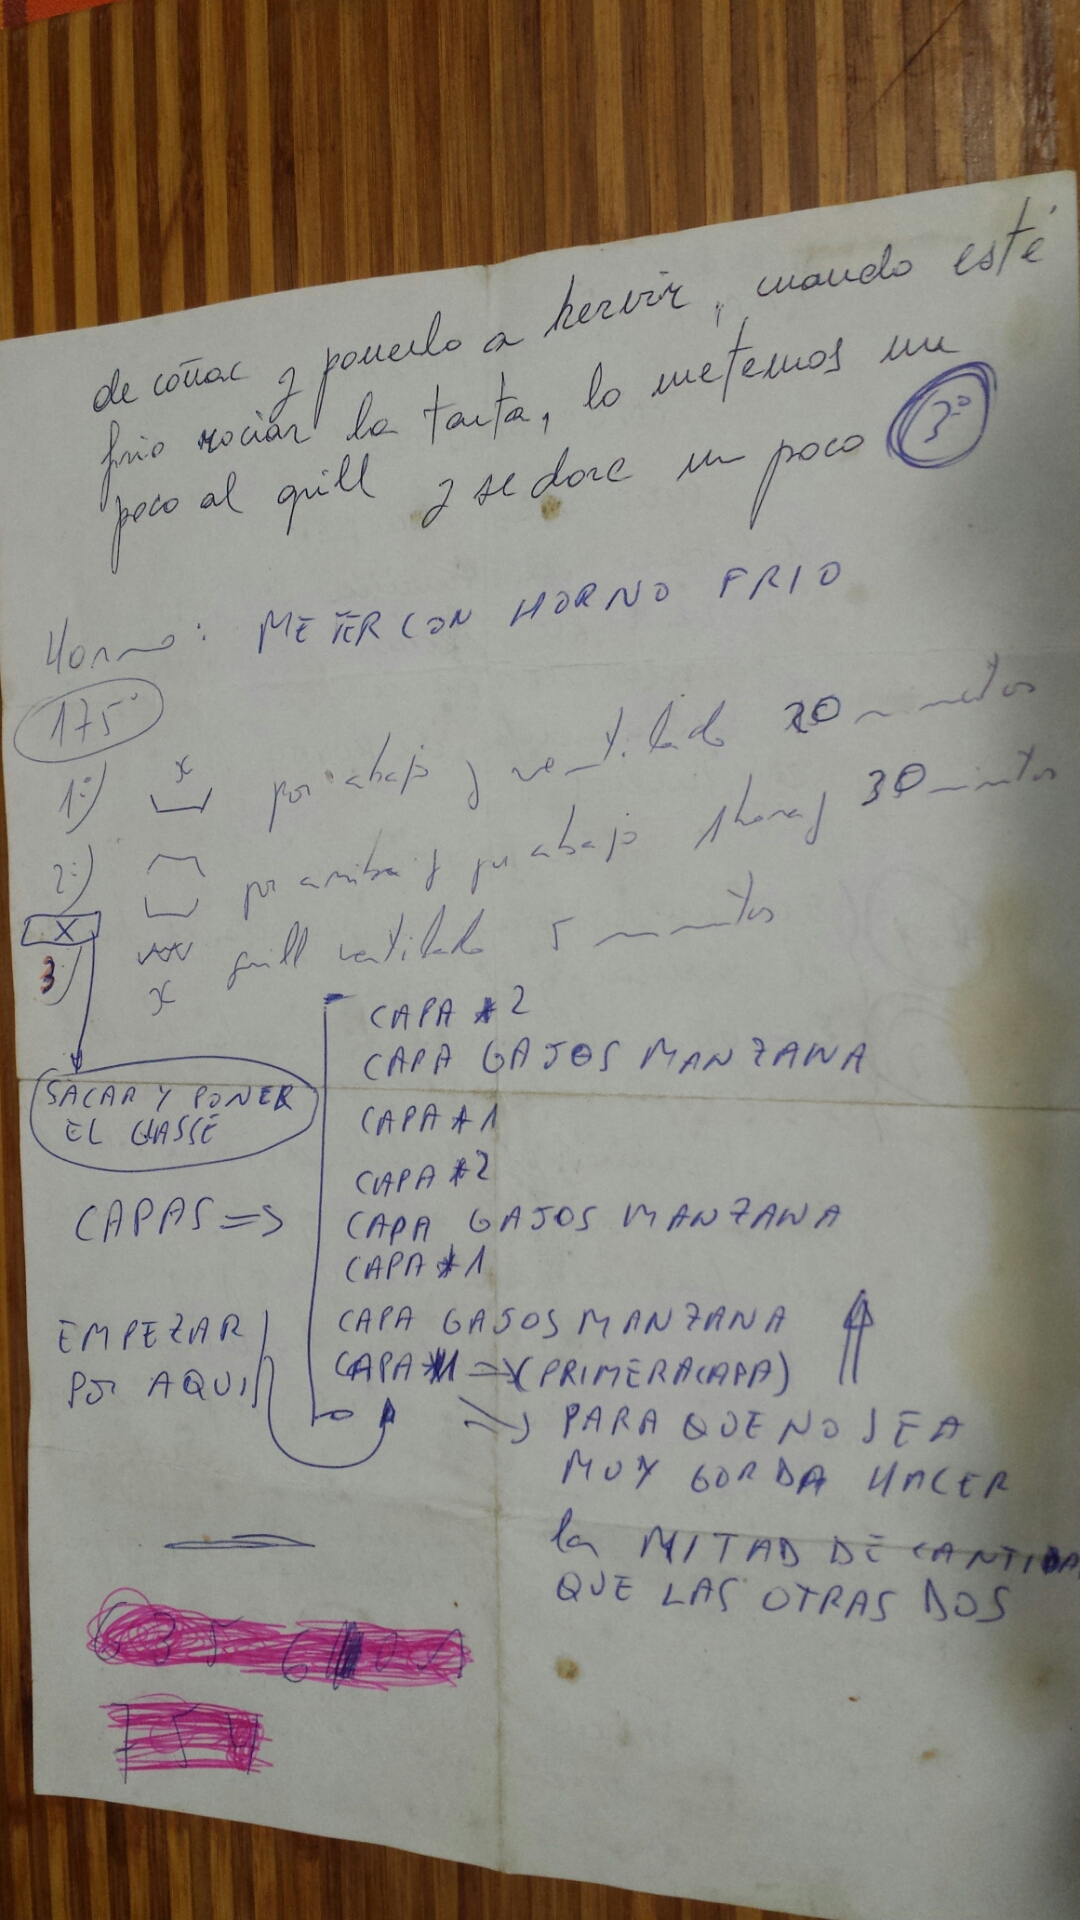 de coñac y ponerlo a hervir, cuando esté
frio rociar la tarta, lo metemos un
poco al grill y se dore un poco 3º
Horno: METER CON HORNO FRIO
175º
1º) x por abajo y ventilado 20 minutos
2º) por arriba y por abajo 1 hora y 30 minutos
X
3º) x grill ventilado 5 minutos
CAPA *2
CAPA GAJOS MANZANA
SACAR Y PONER
EL GLASSÉ
CAPA *1
CAPA *2
CAPAS => CAPA GAJOS MANZANA
CAPA *1
EMPEZAR
POR AQUI
CAPA GAJOS MANZANA
CAPA *1 => (PRIMERA CAPA)
=> PARA QUE NO SEA
MUY GORDA HACER
la MITAD DE CANTIDA
QUE LAS OTRAS DOS